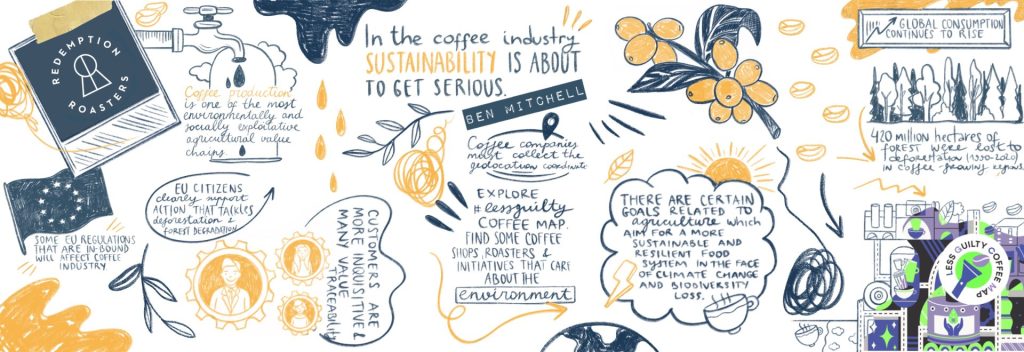 REDEMPTION
ROASTERS
Coffee production
is one of the most
environmentally and
socially exploitative
agricultural value
chains.
SOME EU REGULATIONS
THAT ARE IN-BOUND
WILL AFFECT COFFEE
INDUSTRY
EU CITIZENS
clearly support
ACTION THAT TACKLES
deforestation &
FOREST DEGRADATION
CUSTOMERS ARE
MORE INQUISITIVE &
MANY VALUE
TRACEABILITY
In the coffee industry
SUSTAINABILITY IS ABOUT
TO GET SERIOUS.
BEN MITCHELL
Coffee companies
must collect the
geolocation coordinate
EXPLORE
#lessguilty
COFFEE MAP.
FIND SOME COFFEE
SHOPS, ROASTERS &
INITIATIVES THAT CARE
ABOUT THE
environment
THERE ARE CERTAIN
GOALS RELATED TO
agriculture which
AIM FOR A MORE
SUSTAINABLE AND
RESILIENT FOOD
SYSTEM IN THE FACE
OF CLIMATE CHANGE
AND BIODIVERSITY
LOSS.
GLOBAL CONSUMPTION
CONTINUES TO RISE
420 million hectares of
FOREST WERE LOST TO
deforestation (1990-2020)
in coffee-growing regions
LESS GUILTY COFFEE MAP